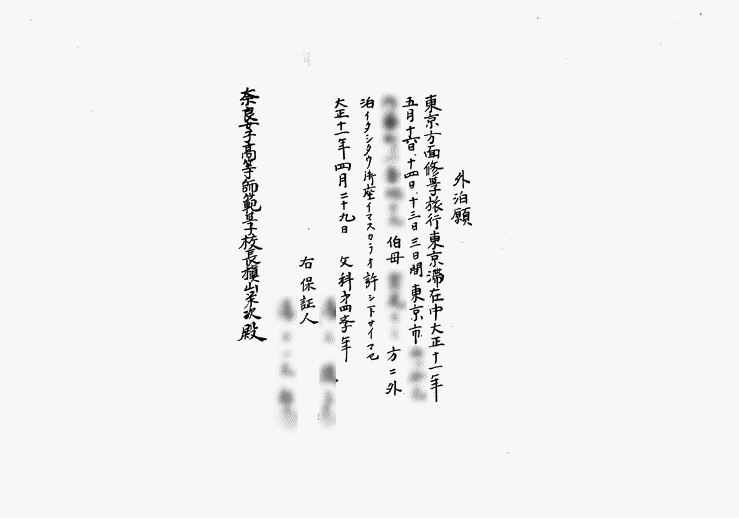 外泊願
東京方面修學旅行東京滞在中大正十一年
五月十六日、十四日、十三日三日間東京市
伯母 方ニ外
泊イタシタウ御座イマスカラオ許シ下サイマセ
大正十一年四月二十九日 文科第四学年
右保証人
奈良女子高等師範学校長槇山栄次殿